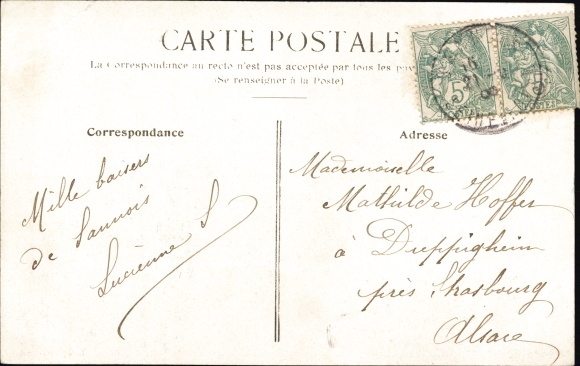 CARTE POSTALE
La Correspondance au recto n'est pas acceptée par tous les pays
(Se renseigner à la Poste)
Correspondance
Adresse
Mille baisers
de Sannois
Lucienne S
Mademoiselle
Mathilde Hoffer
à Duppigheim
près Strasbourg
Alsace
5